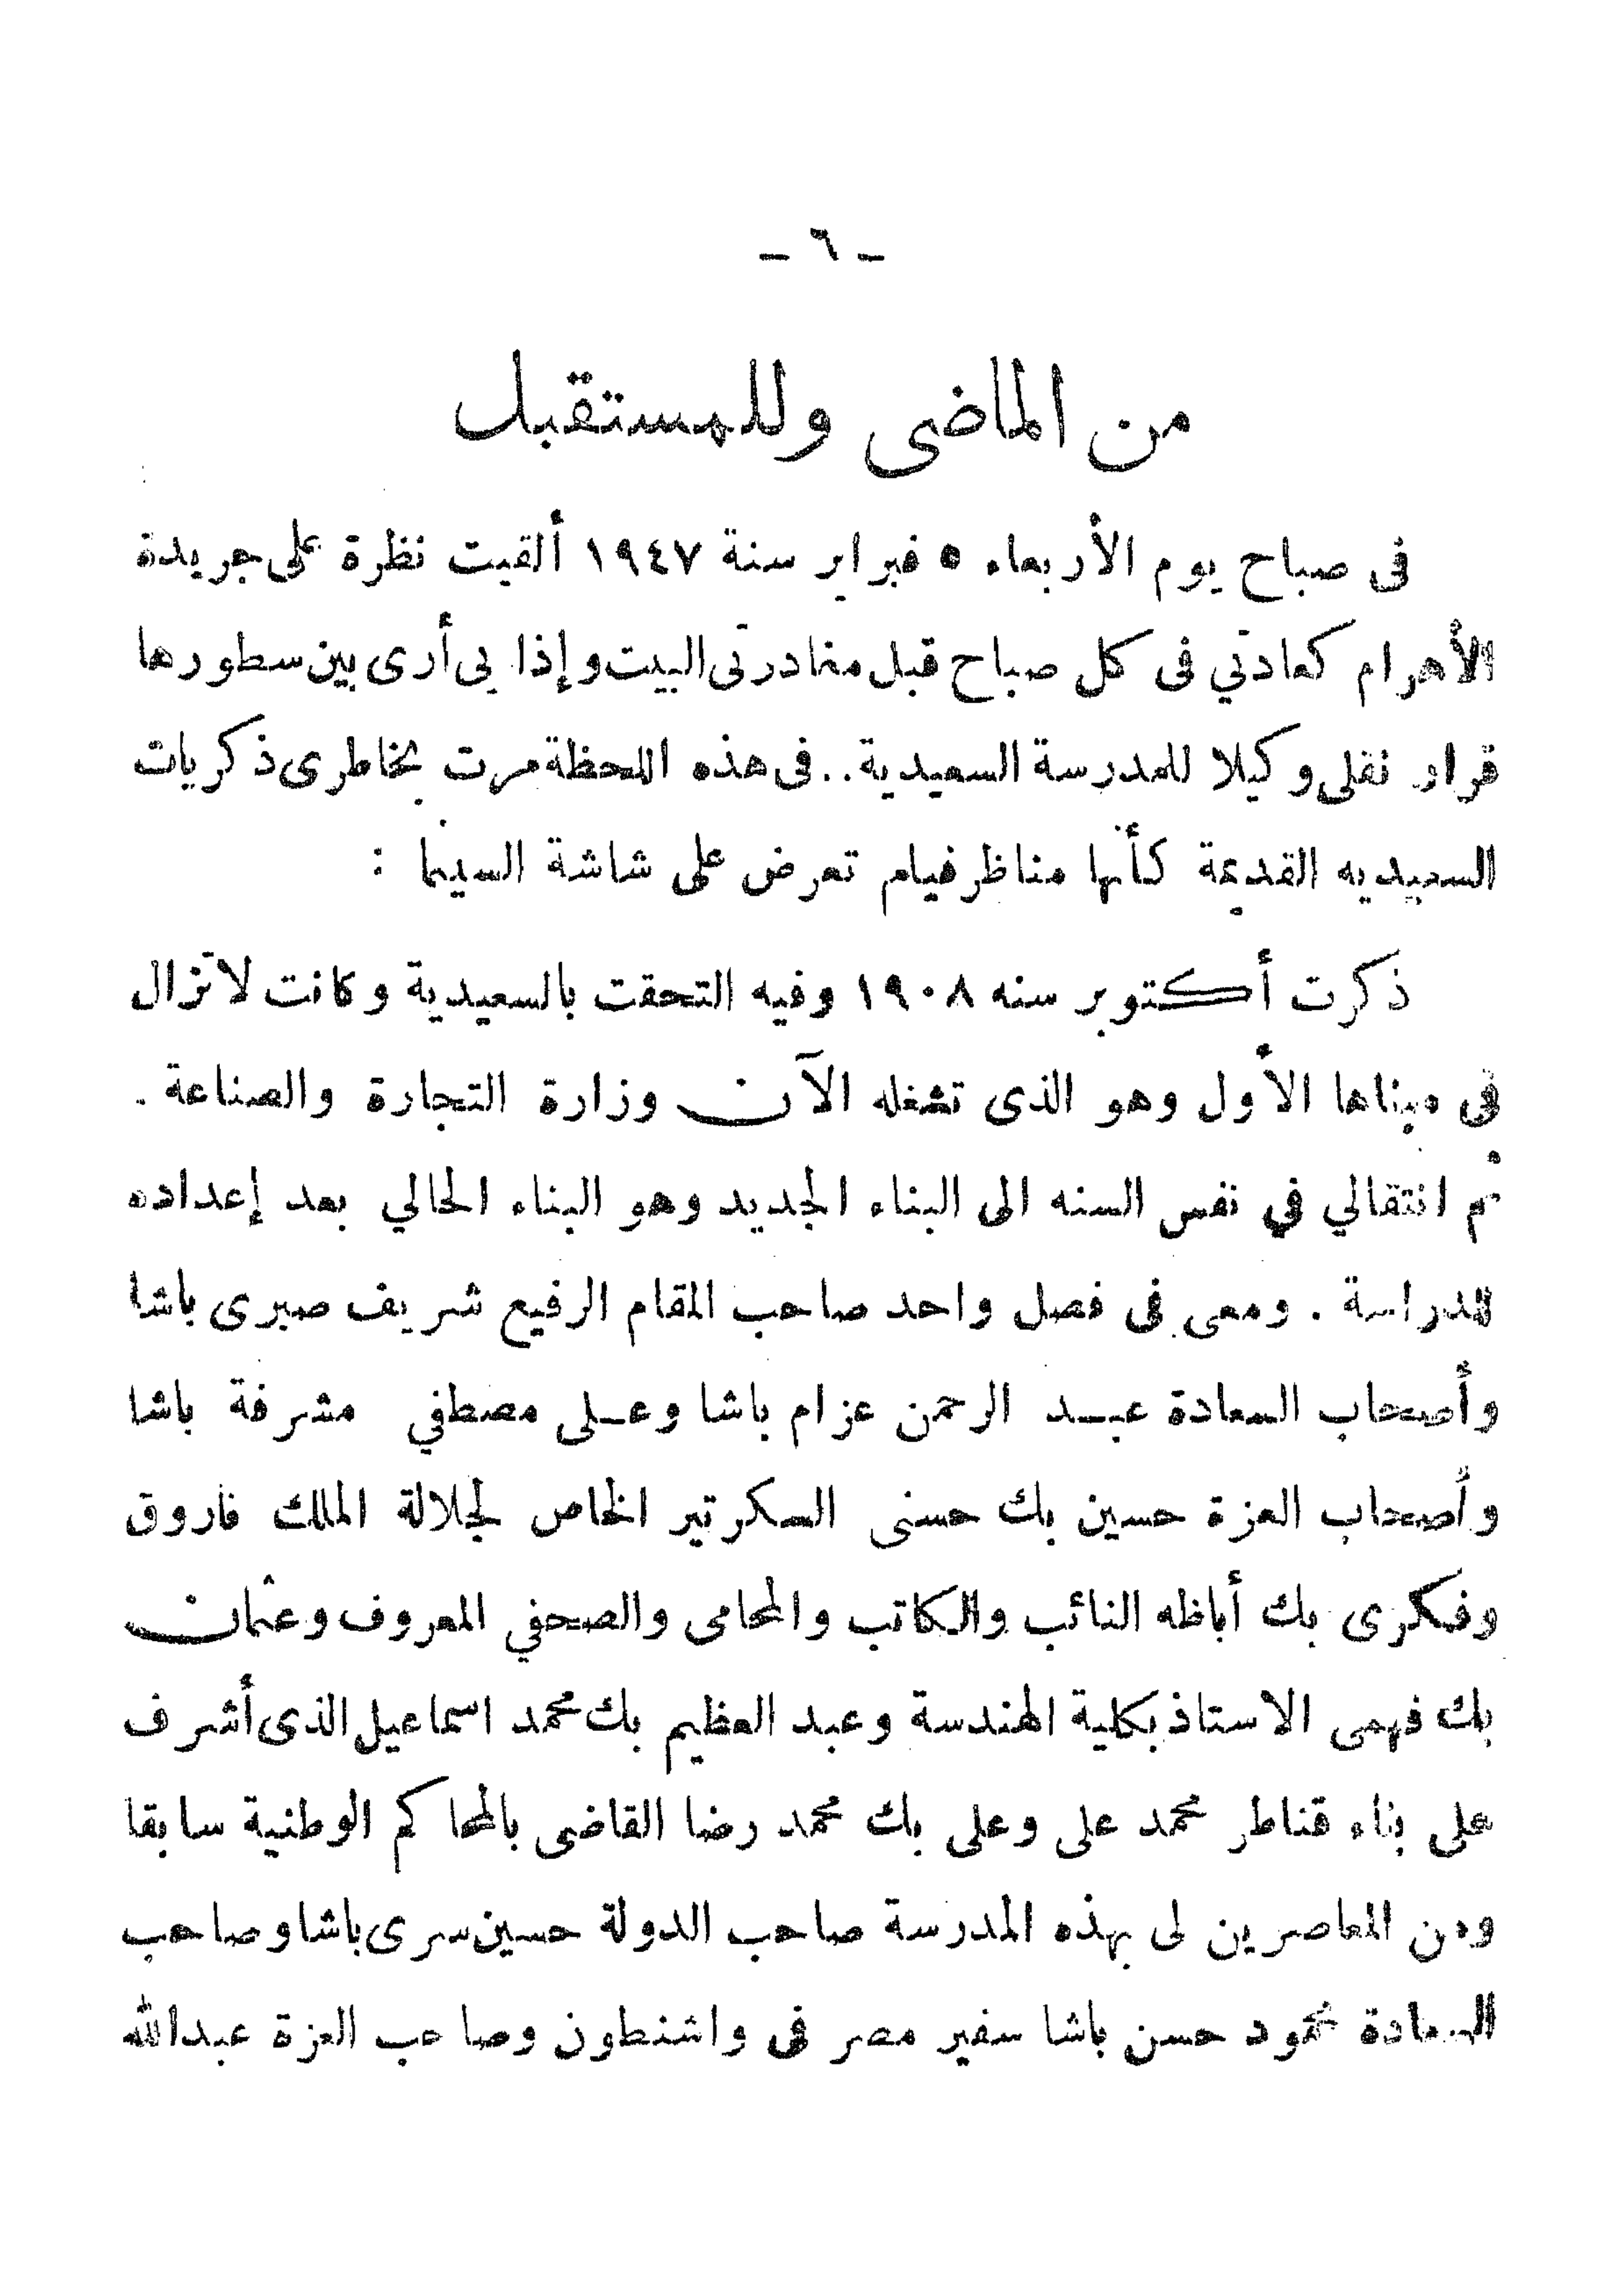 - ٦ -
من الماضى وللمستقبل
فى صباح يوم الأربعاء ٥ فبراير سنة ١٩٤٧ ألقيت نظرة على جريدة
الأهرام كعادتي فى كل صباح قبل مغادرتى البيت وإذا بى أرى بين سطورها
قرار نقلى وكيلا للمدرسة السعيدية .. فى هذه اللحظة مرت بخاطرى ذكريات
السعيديه القديمة كأنها مناظر فيلم تعرض على شاشة السينما :
ذكرت أكتوبر سنه ١٩٠٨ وفيه التحقت بالسعيدية وكانت لا تزال
في مبناها الأول وهو الذى تشغله الآن وزارة التجارة والصناعة .
ثم انتقالي في نفس السنه الى البناء الجديد وهو البناء الحالي بعد إعداده
للدراسة . ومعى فى فصل واحد صاحب المقام الرفيع شريف صبرى باشا
وأصحاب السعادة عبد الرحمن عزام باشا وعلى مصطفي مشرفة باشا
وأصحاب العزة حسين بك حسنى السكرتير الخاص لجلالة الملك فاروق
وفكرى بك أباظه النائب والكاتب والمحامى والصحفي المعروف وعثمان
بك فهمى الاستاذ بكلية الهندسة وعبد العظيم بك محمد اسماعيل الذى أشرف
على بناء قناطر محمد على وعلى بك محمد رضا القاضى بالمحاكم الوطنية سابقا
ومن المعاصرين لى بهذه المدرسة صاحب الدولة حسين سرى باشا وصاحب
السعادة محمود حسن باشا سفير مصر فى واشنطون وصاحب العزة عبدالله